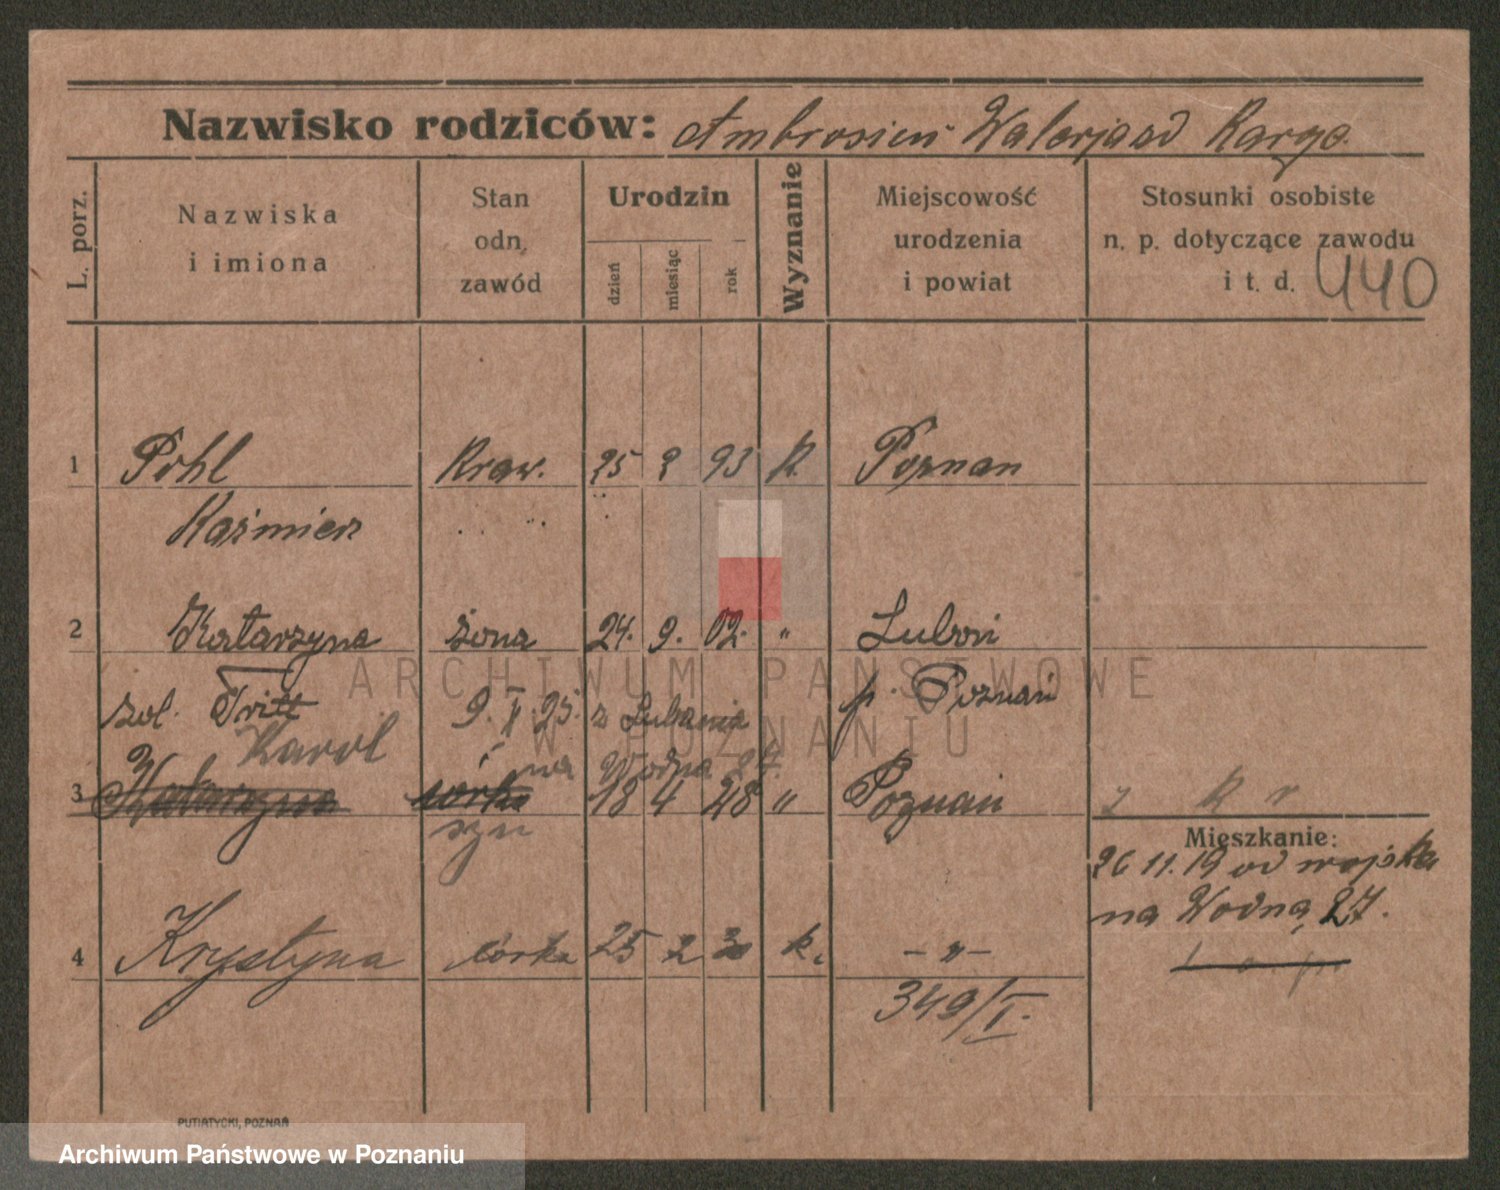 Nazwisko rodziców: Ambrosien Walerja zd Karge
L. porz.
Nazwiska i imiona
Stan odn. zawód
Urodzin
dzień
miesiąc
rok
Wyznanie
Miejscowość urodzenia i powiat
Stosunki osobiste n. p. dotyczące zawodu i t. d.
440
1 Pohl Kraw. 25 2 93 K. Poznan
Kaźmierz
2 Katarzyna żona 24. 9. 02. " Luboń
zwl. Tritt 9. II 25. z Lubonia p. Poznań
Karol na Wodna 27.
3 Katarzyna córka 18 4 28 " Poznań
syn
Mieszkanie:
26 11. 19 od wojska
na Wodną 27.
4 Krystyna córka 25 2 30 k. - " -
349/I.
PUTIATYCKI, POZNAŃ
ARCHIWUM PAŃSTWOWE
W POZNANIU
Archiwum Państwowe w Poznaniu